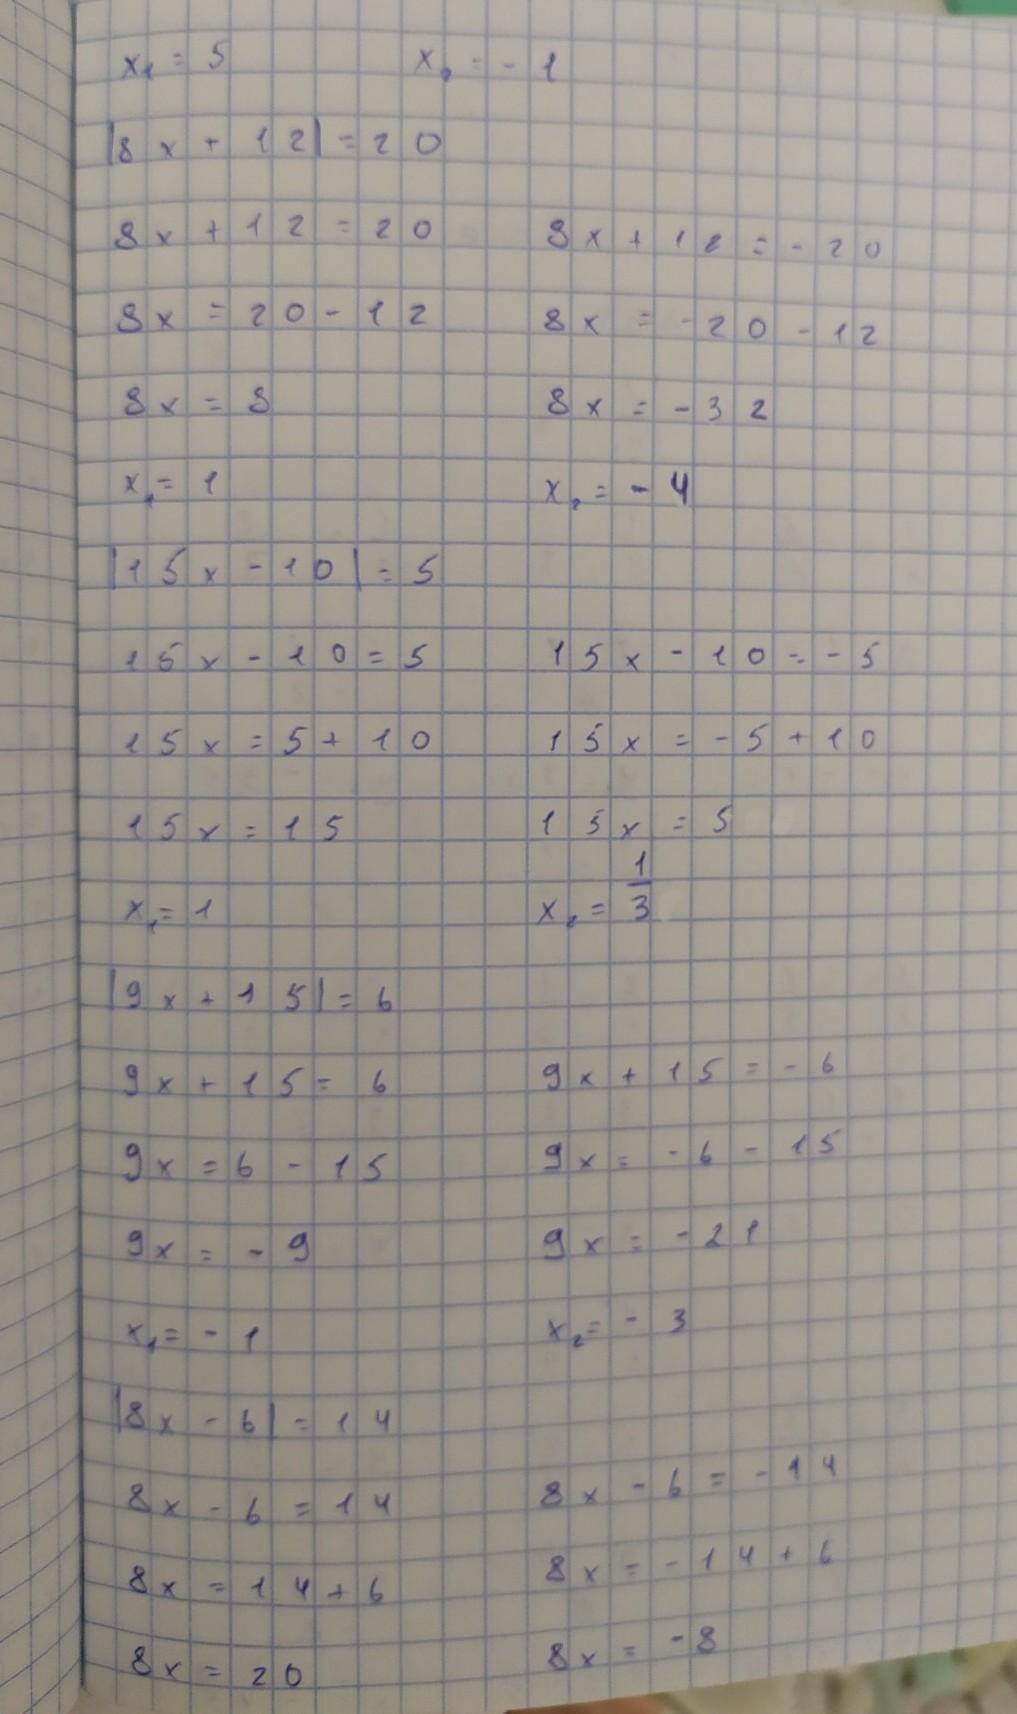 x₁ = 5 x₂ = - 1
|8x + 12| = 20
8x + 12 = 20 8x + 12 = - 20
8x = 20 - 12 8x = - 20 - 12
8x = 8 8x = - 32
x₁ = 1 x₂ = - 4
|15x - 10| = 5
15x - 10 = 5 15x - 10 = - 5
15x = 5 + 10 15x = - 5 + 10
15x = 15 15x = 5
x₁ = 1 x₂ = 1/3
|9x + 15| = 6
9x + 15 = 6 9x + 15 = - 6
9x = 6 - 15 9x = - 6 - 15
9x = - 9 9x = - 21
x₁ = - 1 x₂ = - 3
|8x - 6| = 14
8x - 6 = 14 8x - 6 = - 14
8x = 14 + 6 8x = - 14 + 6
8x = 20 8x = - 8